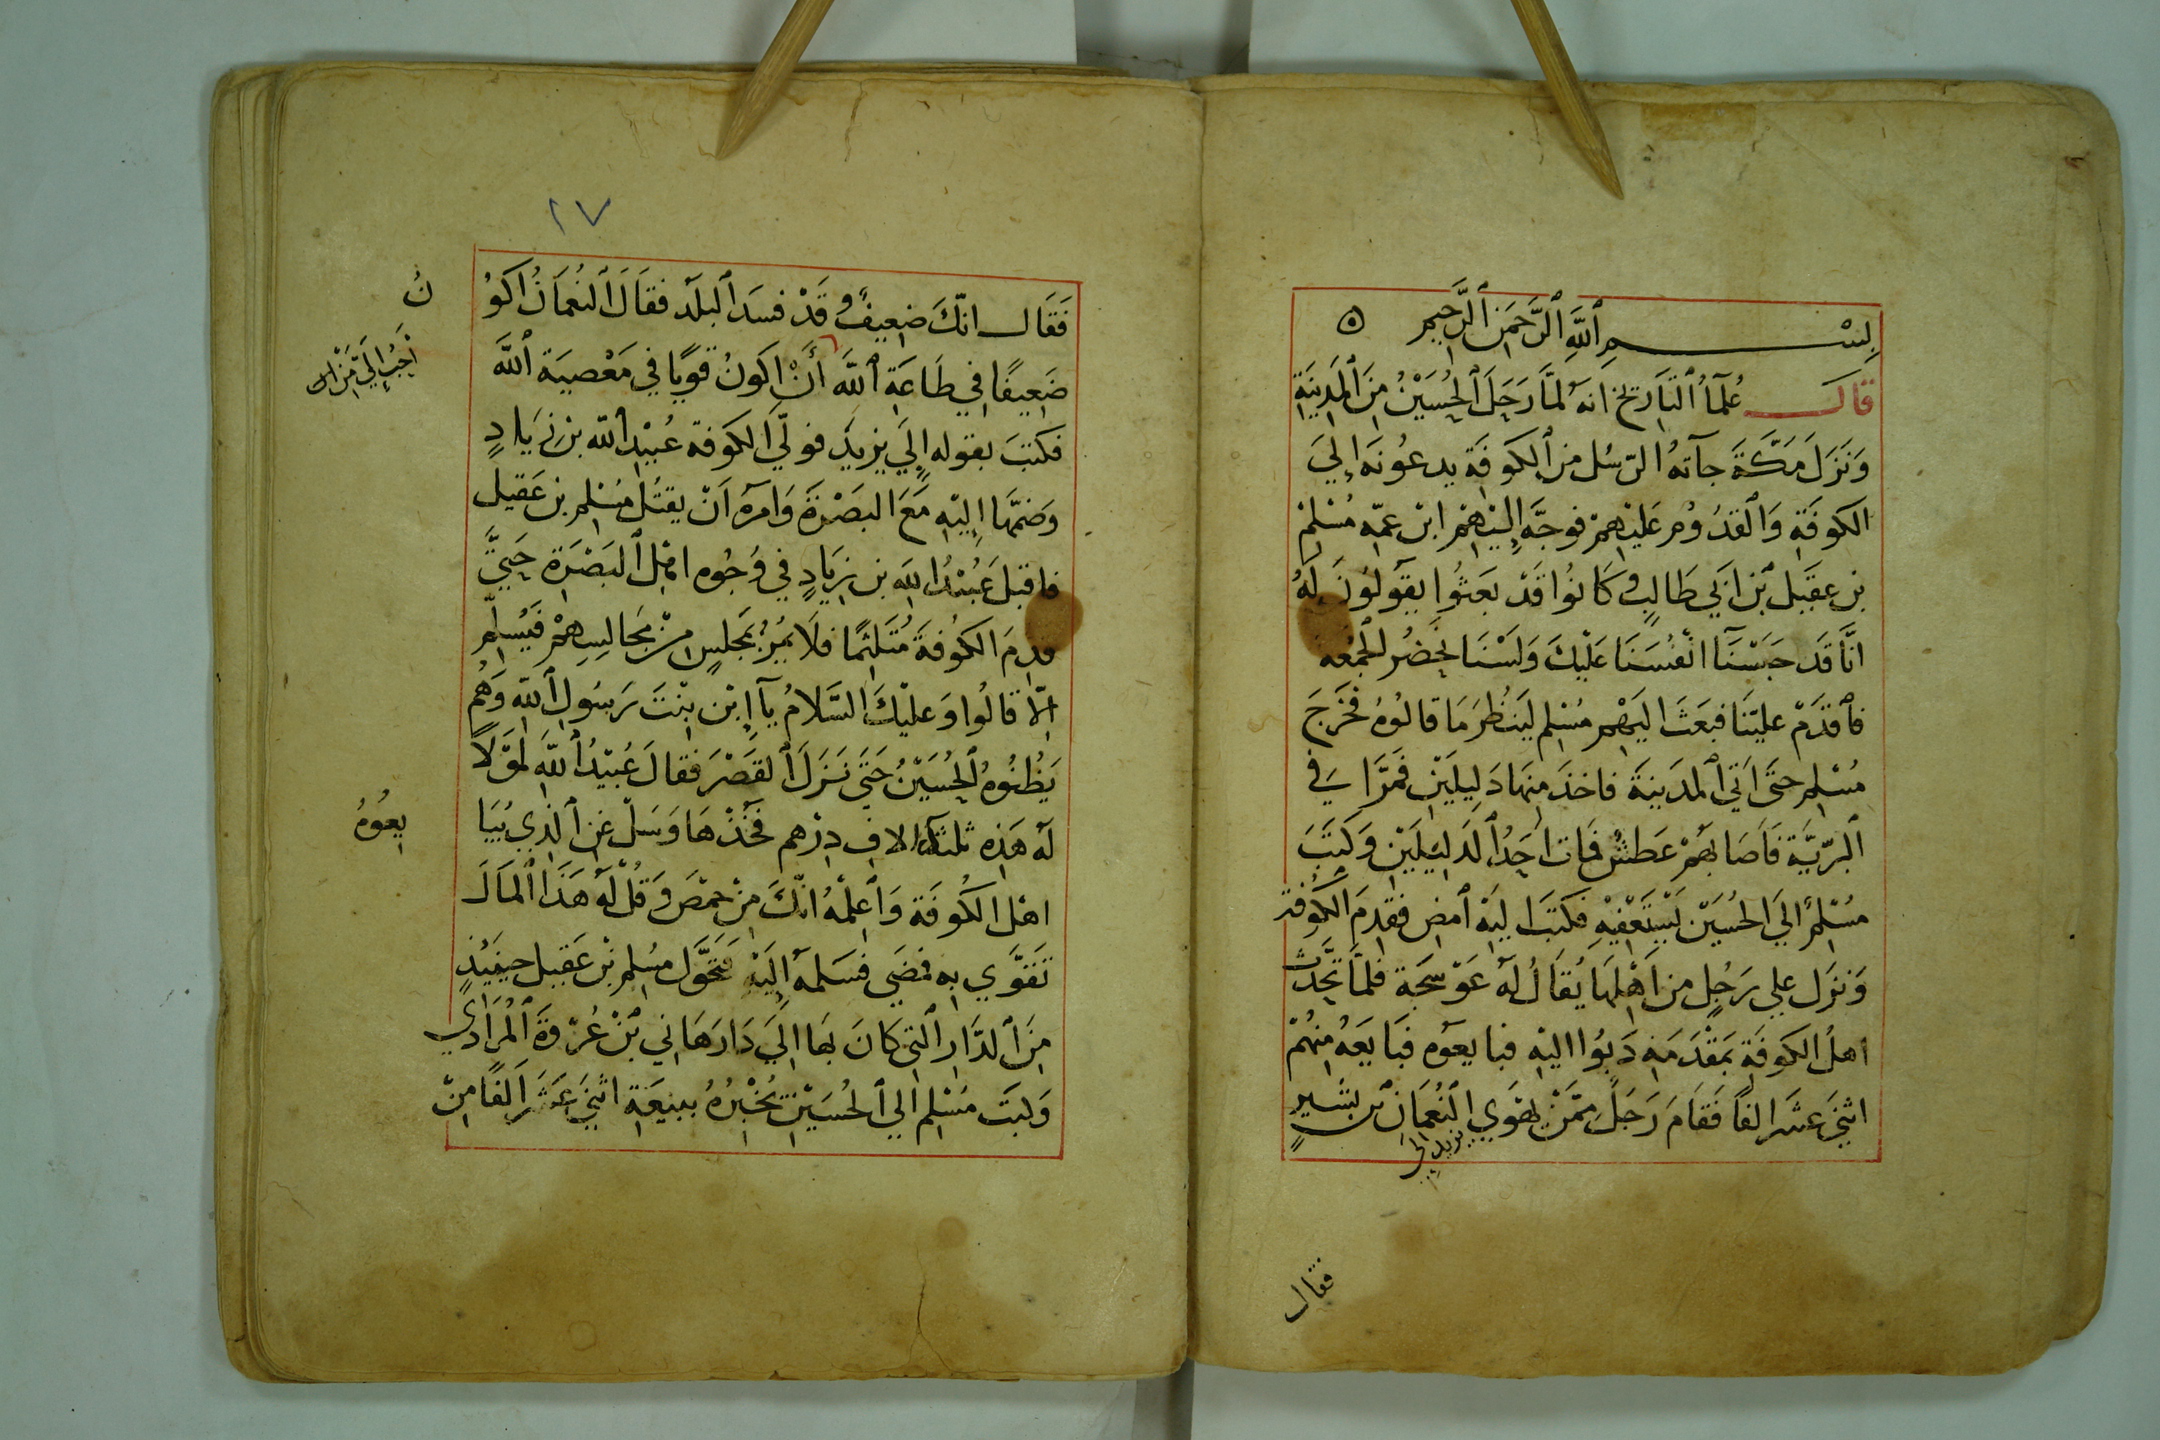 بِسْمِ ٱللَّهِ ٱلرَّحْمَنِ ٱلرَّحِيمِ ۞
قَالَ عُلَمَآءُ ٱلتَّارِيخ انهُ لمَّا رَحَلَ ٱلحُسَيْنُ مِنَ ٱلمَدِينَةِ
وَنَزَلَ مَكَّةَ جآتهُ الرّسُل من ٱلكوفَةِ يدعُونَه إِلَى
الكوفَةِ وَٱلقدُومِ عَليْهِمْ فوجَّه إِلَيْهِمْ ابْن عمِّه مُسْلِمْ
بن عقيل بْن ابي طَالِبٍ وكَانُوا قَدْ بَعَثُوا يقولُونَ لَهُ
انَّا قَد حَبَسْنَآ انْفُسَنَا عَلَيْكَ وَلَسْنَا نَحضُر الجُمُعَة
فٱقدَمْ عليْنَا فبعَثَ اليَهْم مُسْلم لينظرَ مَا قالوُهُ فخَرَجَ
مُسْلِم حتَّى اتي ٱلمدَينَةَ فاخذَ مِنهَا دَلِيلَيْنِ فمَرَّا بِي فِي
ٱلبَرِّيَّةِ فَأصَابهُمْ عَطشٌ فمَات احَدُ ٱلدَلِيلَيْنِ وَكتَبَ
مُسْلِمٌ الَي الحُسَيْن يَسْتَعْفِيْهِ فكتَبَ اليَهْ ٱمض فقدِمَ الكوفة
وَنزَل علي رَجُلٍ من اَهْلِهَا يُقَالُ لَهُ عَوْسجَة فلمَّا تحَّدَث
اهلُ الكوفَةِ بمَقْدَمَهِ دَبُوا اليْهِ فبايعوُه فبَايَعَهُ مِنهُمْ
اثنَى عشَر الفًا فَقَامَ رَجَلٌ مِمَّنْ يهْوَي يزيد الى ٱلنُعْمَانِ بْن بَشَيرٍ
فقال
١٧
فَقَال انّكَ ضعِيفٌ وقَدْ فسَد ٱلبلَد فقالَ ٱلنُعْمَانُ اكوُنُ
ضَعِيفًا فِي طَاعَةِ ٱللَّه أَحَبُّ إِلَيَّ مِنْ أَنْ اكَونُ قوَيًا فِي مَعْصِيَة ٱللَّه
فكتبَ بقوله إِلَى يزيدَ فولَّى الكوفة عُبَيْد ٱلله بن زيَادٍ
وَضمَّهَا إِليْهِ مَعَ البَصْرَةَ وَامَره اَنْ يقتُل مُسْلِم بن عَقِيل
فاقبلَ عُبَيْدُ الله بن زِيَادٍ في وُجُوه اهْل ٱلبَصْرَةِ حَتيَّ
قدِمَ الكوُفَةَ مُتَلَثِّمًا فلَا يمُرُّ بمَجلسٍ مِنْ مجَالِسِهِمْ فَيُسَلِّم
الاّ قالُوا وَعليْكَ السَّلامُ يآ إبْن بِنْتَ رَسُولِ ٱللهِ وَهُم
يَظُنوُهُ ٱلحُسَيْنُ حَتَى نَزَلَ ٱلقصْرَ فقالَ عُبَيْدُ ٱللَّه لمَوْلًا
لَهُ هَذِه ثلثَة الاف دِرْهم فخُذْهَا وَسَلْ عَن ٱلذِي يُبَايعوُهُ
اهْل الكُوفَة وَٱعلِمْهُ انّكَ مِنْ حمْصَ وَقُلْ لَهُ هَذَا ٱلمَالَ
تَقوَّي بِه فمضَي فسَلمهُ إِليَهْ فتحَوَّل مسُلِم بْن عَقِيل حِينَئِذٍ
مِنَ ٱلدَّارِ ٱلتِي كَانَ بهَا الِيَ دَارَ هَانِي بْنْ عُرْوَةَ ٱلمُرَادِي
وَكتبَ مُسْلم الي ٱلحُسَيْن يُخْبِرُهُ ببيْعَةِ اثنَى عَشَر اَلفًا مِنْ